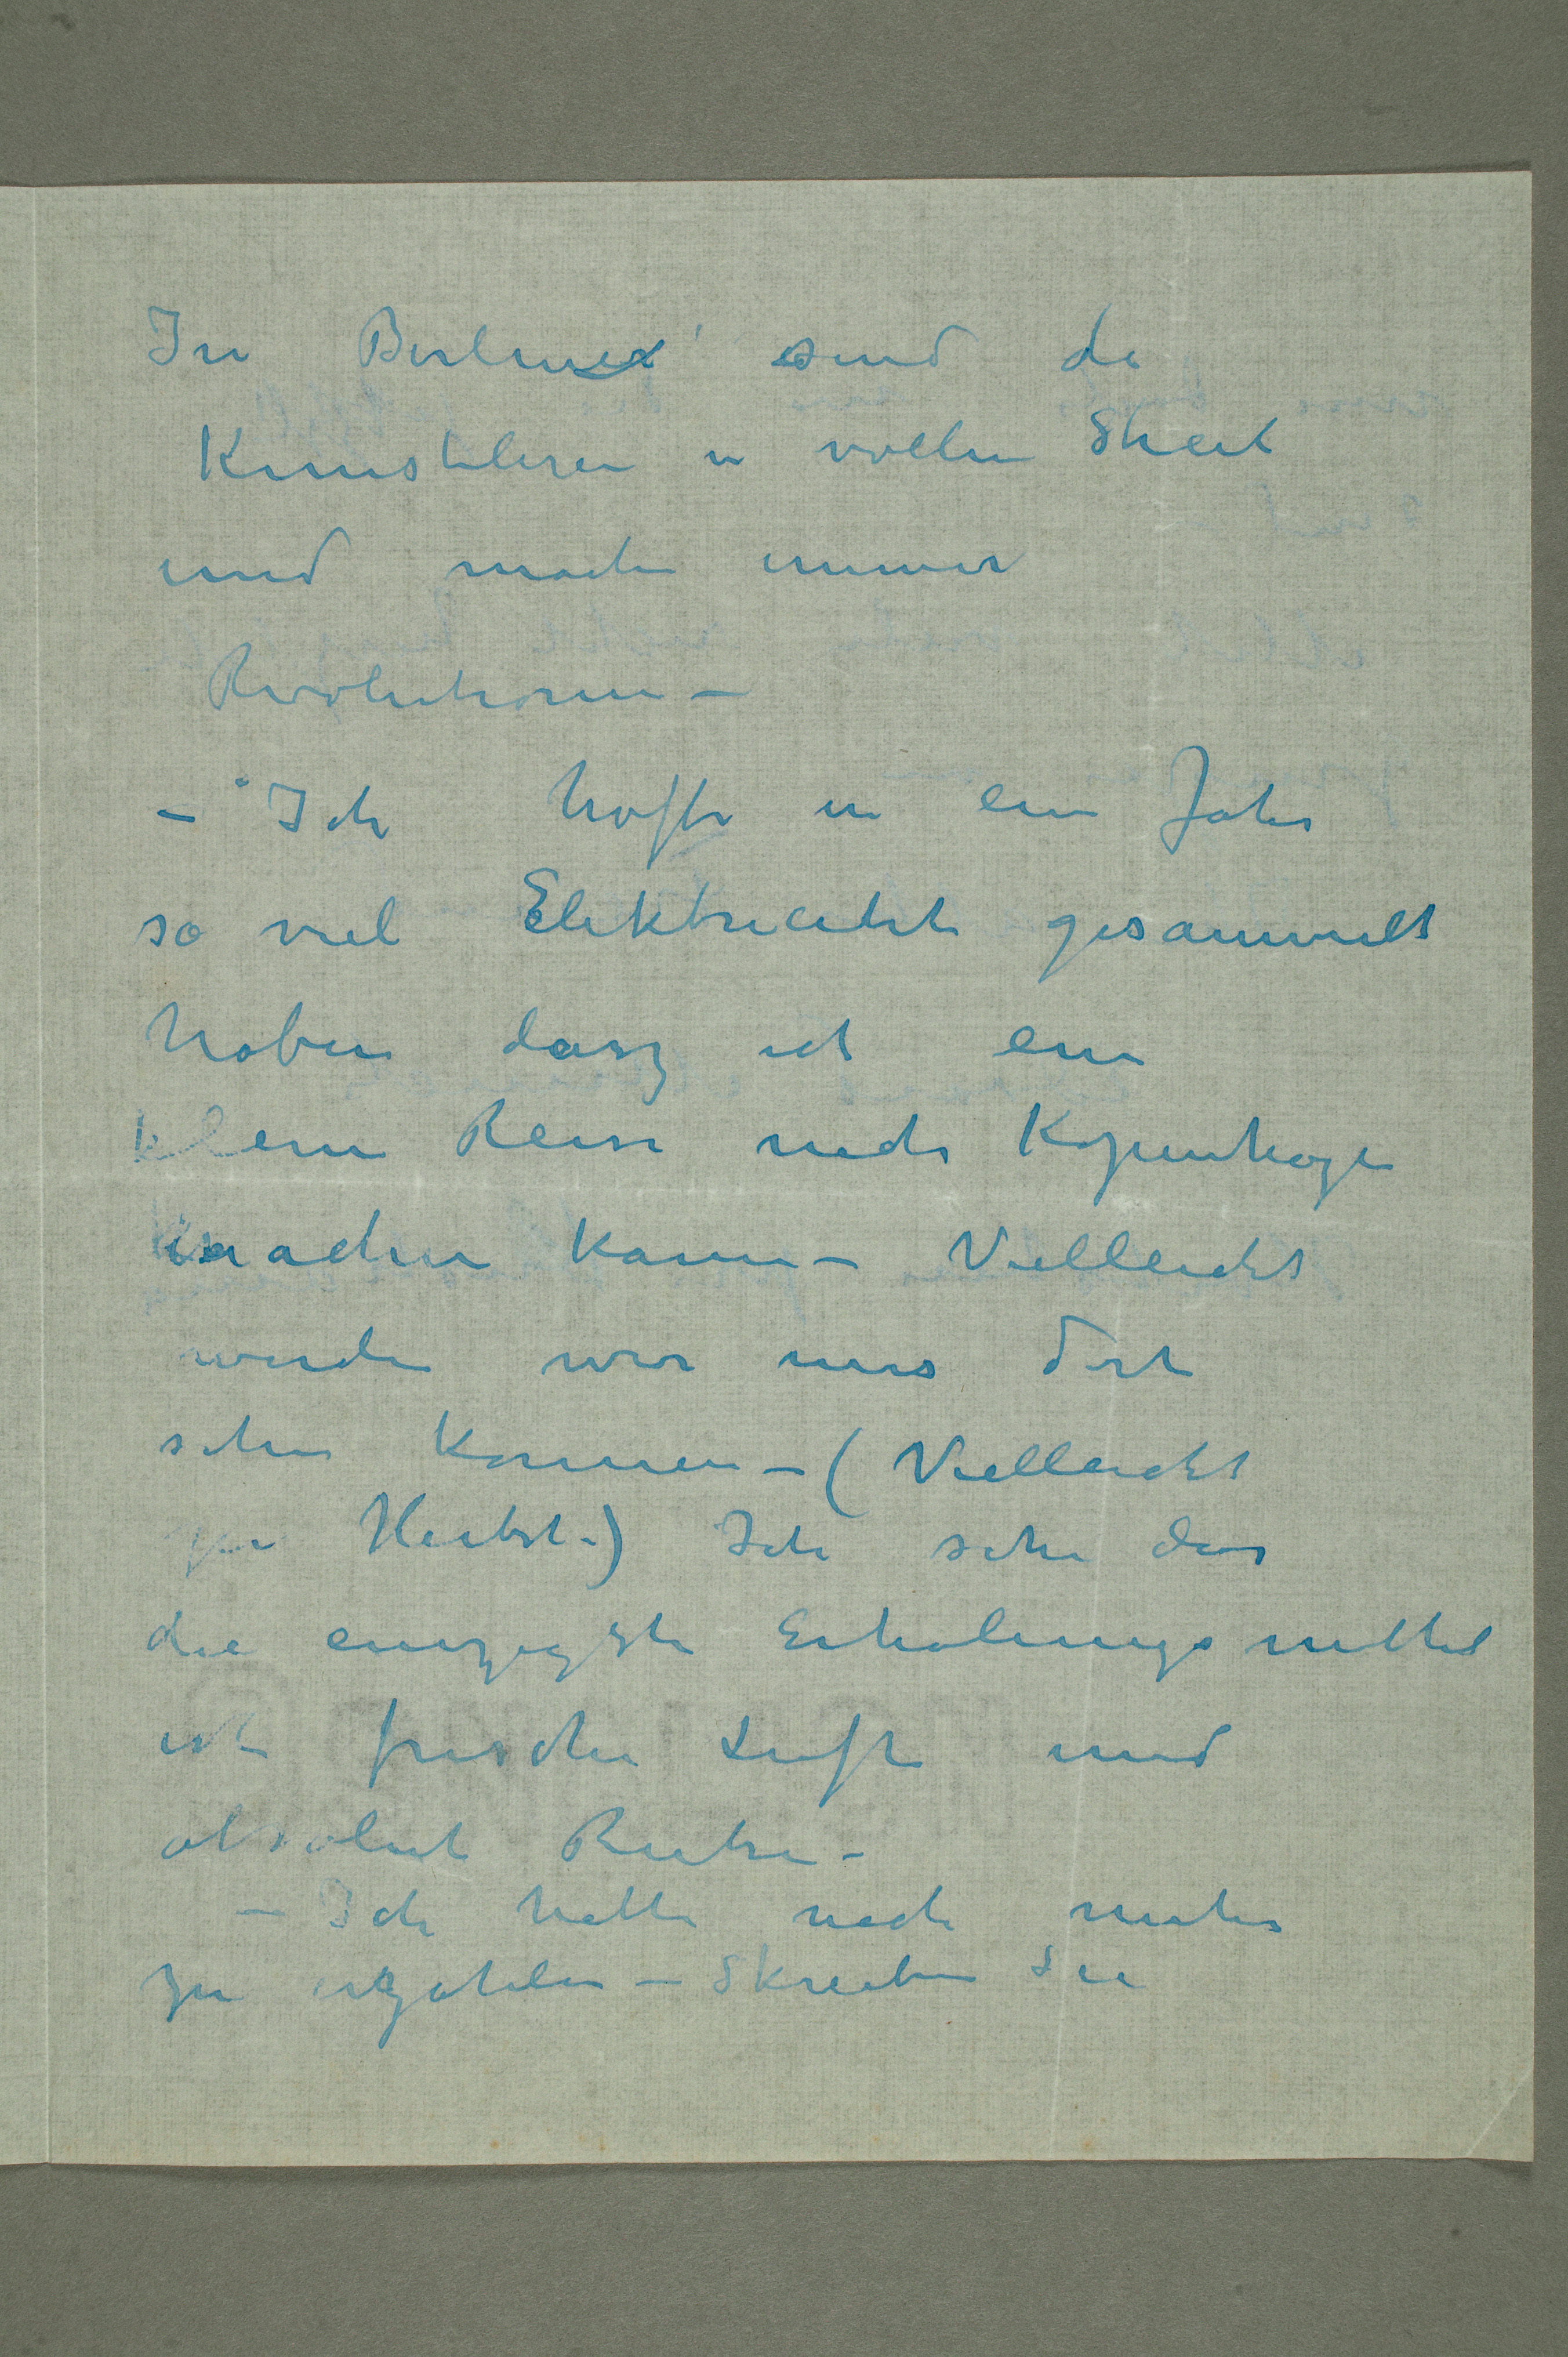 In Berlin sind di
Kunstleren in vollen Streit
und machen immer
Revolutionen –
– Ich hoffe in ein Jahr
so viel Elektricität gesammelt
haben dasz ich ein
kleine Reise nach Kopenhagen
machen kann – Vielleicht
werden wir uns dort
sehen konnen – (Vielleicht
zu Herbst.) Ich sehe das
die einzigste Erholungsmittel
ist frische Luft und
absolut Ruhe –
– Ich hatte noch mehr
zu erzahlen – Skreiben Sie